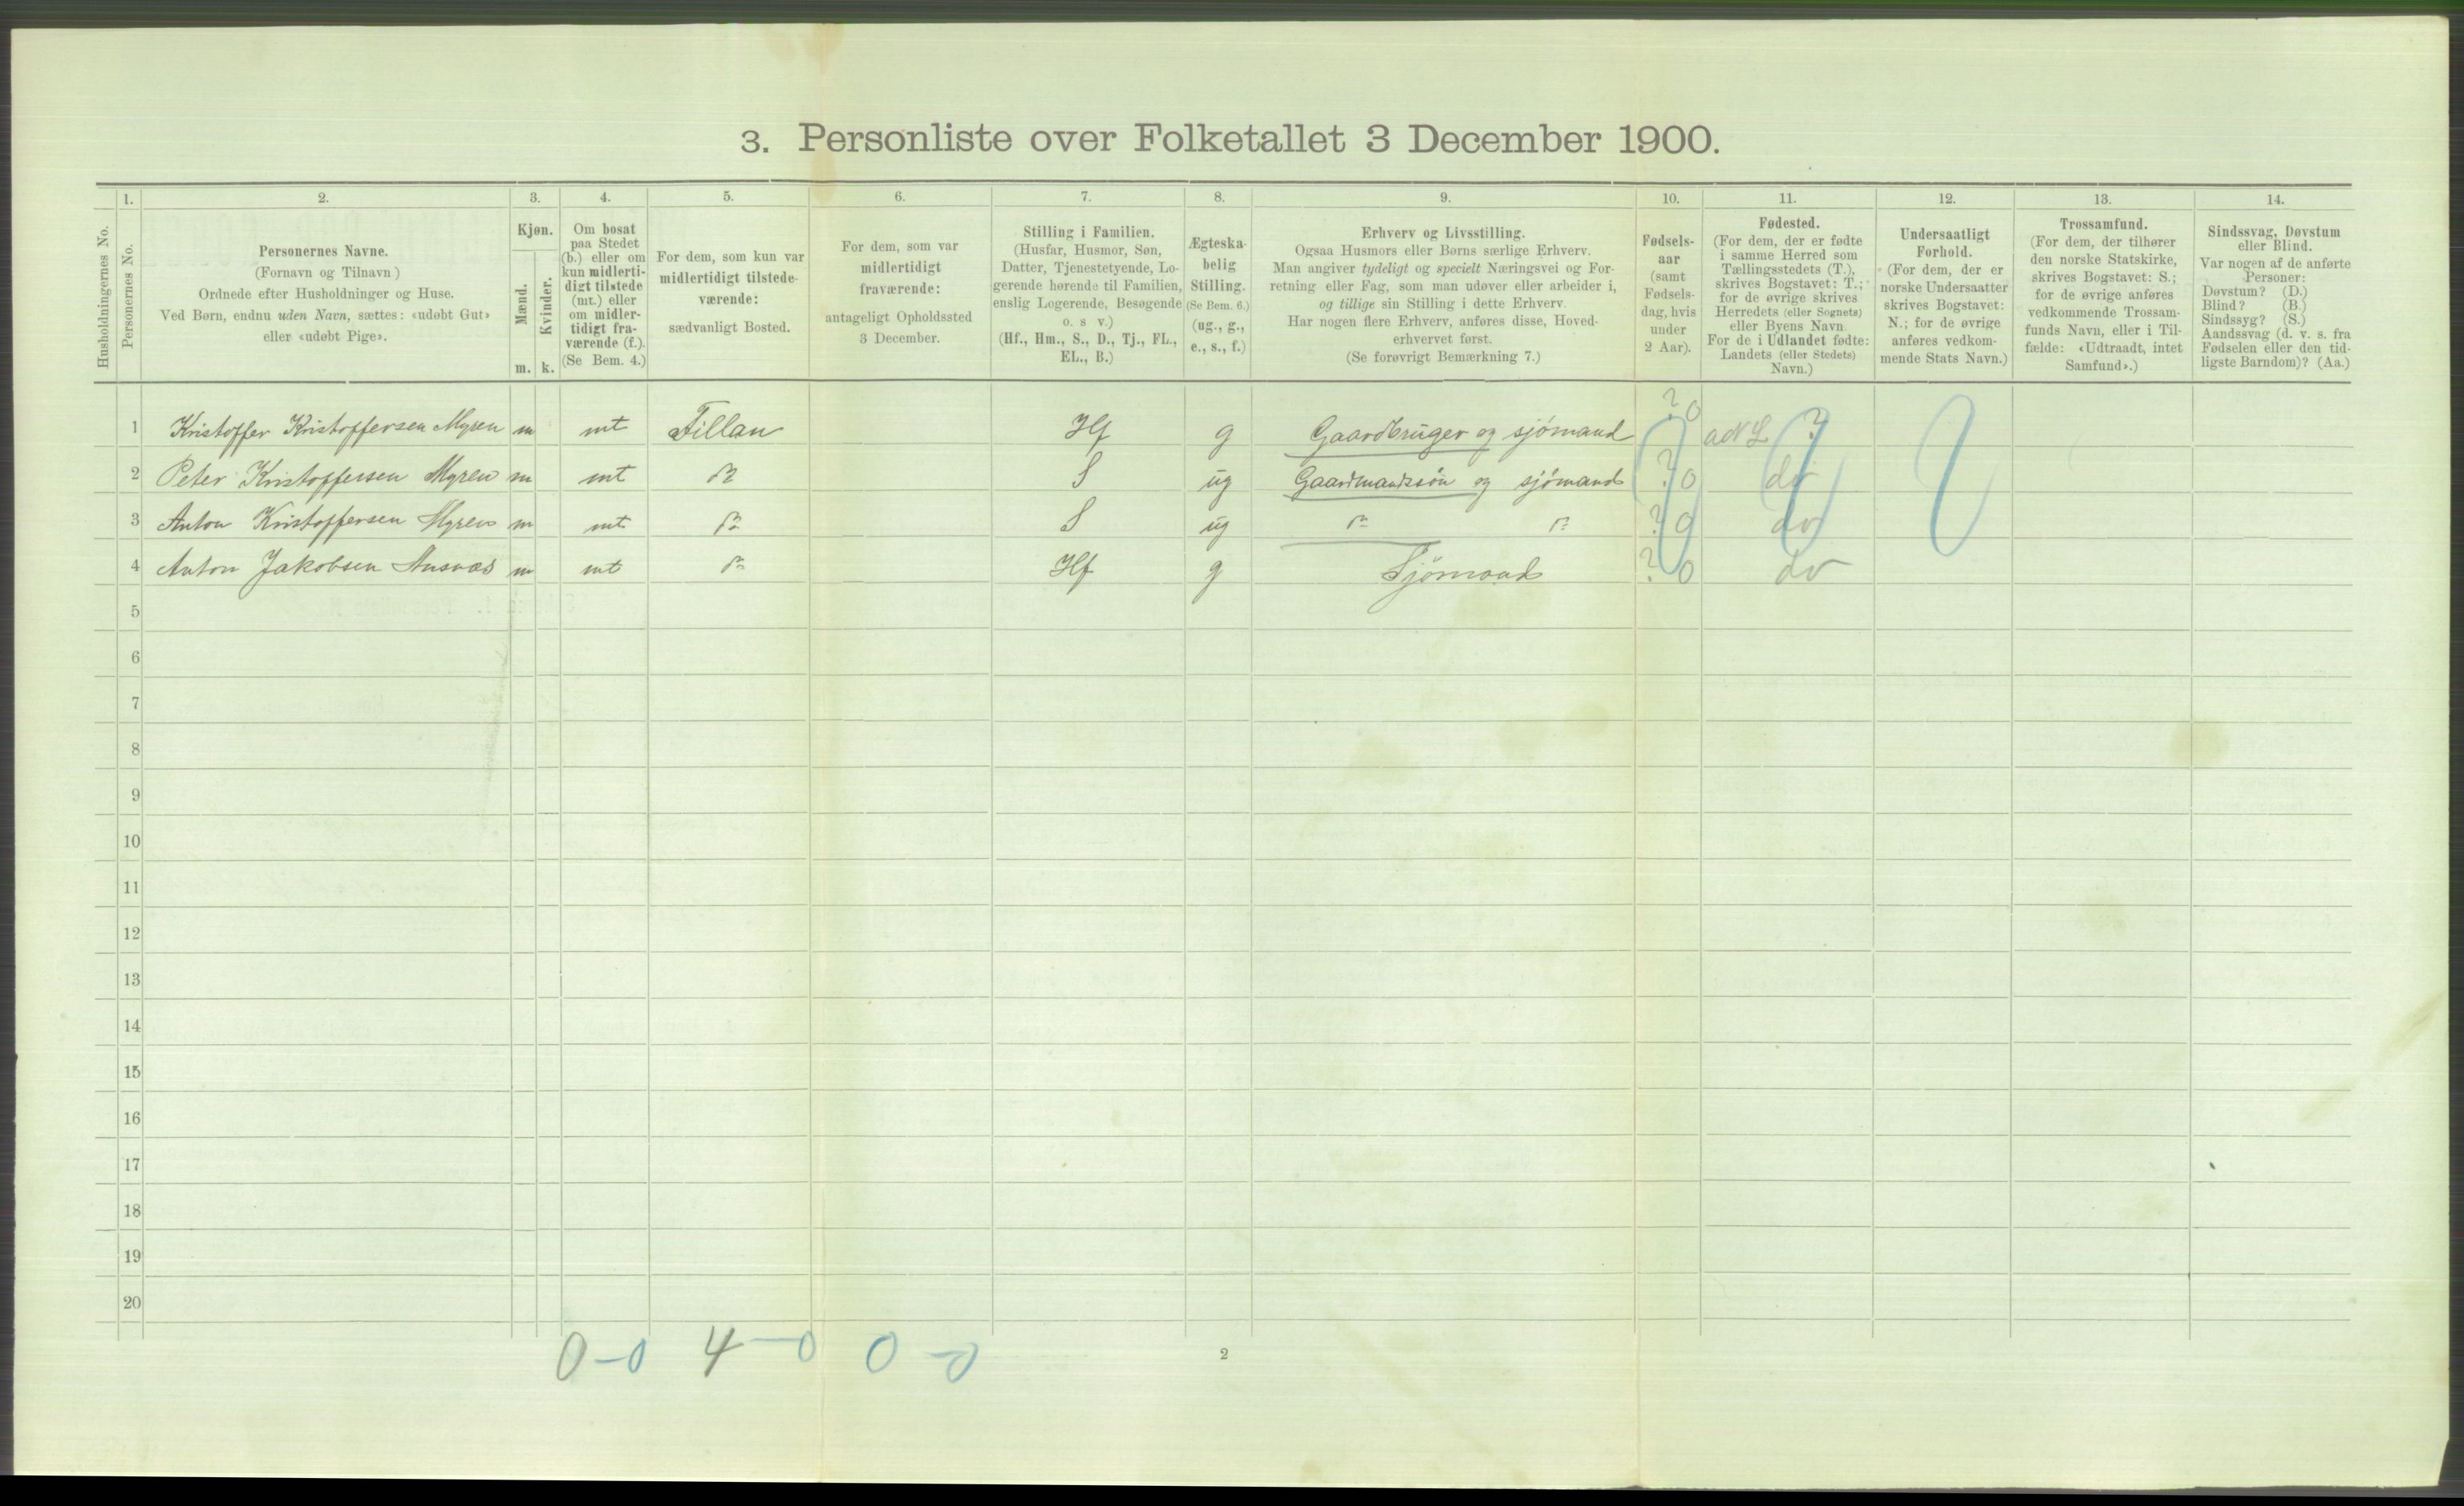 3. Personliste over Folketallet 3 December 1900.
Husholdningernes No.
1.
Personernes No.
2.
Personernes Navne.
(Fornavn og Tilnavn)
Ordnede efter Husholdninger og Huse.
Ved Børn, endnu uden Navn, sættes: «udøbt Gut»
eller «udøbt Pige».
3.
Kjøn.
Mænd.
Kvinder.
m. k.
4.
Om bosat
paa Stedet
(b.) eller om
kun midlerti-
digt tilstede
(mt.) eller
om midler-
tidigt fra-
værende (f.).
(Se Bem. 4.)
5.
For dem, som kun var
midlertidigt tilstede-
værende:
sædvanligt Bosted.
6.
For dem, som var
midlertidigt
fraværende:
antageligt Opholdssted
3 December.
7.
Stilling i Familien.
(Husfar, Husmor, Søn,
Datter, Tjenestetyende, Lo-
gerende hørende til Familien,
enslig Logerende, Besøgende
o. s v.)
(Hf., Hm., S., D., Tj., FL.,
EL., B.)
8.
Ægteska-
belig
Stilling.
(Se Bem. 6.)
(ug., g.,
e., s., f.)
9.
Erhverv og Livsstilling.
Ogsaa Husmors eller Børns særlige Erhverv.
Man angiver tydeligt og specielt Næringsvei og For-
retning eller Fag, som man udøver eller arbeider i,
og tillige sin Stilling i dette Erhverv.
Har nogen flere Erhverv, anføres disse, Hoved-
erhvervet først.
(Se forøvrigt Bemærkning 7.)
10.
Fødsels-
aar
(samt
Fødsels-
dag, hvis
under
2 Aar).
11.
Fødested.
(For dem, der er fødte
i samme Herred som
Tællingsstedets (T.),
skrives Bogstavet: T.;
for de øvrige skrives
Herredets (eller Sognets)
eller Byens Navn.
For de i Udlandet fødte:
Landets (eller Stedets)
Navn.)
12.
Undersaatligt
Forhold.
(For dem, der er
norske Undersaatter
skrives Bogstavet:
N.; for de øvrige
anføres vedkom-
mende Stats Navn.)
13.
Trossamfund.
(For dem, der tilhører
den norske Statskirke,
skrives Bogstavet: S.;
for de øvrige anføres
vedkommende Trossam-
funds Navn, eller i Til-
fælde: «Udtraadt, intet
Samfund».)
14.
Sindssvag, Døvstum
eller Blind.
Var nogen af de anførte
Personer:
Døvstum? (D.)
Blind? (B.)
Sindssyg? (S.)
Aandssvag (d. v. s. fra
Fødselen eller den tid-
ligste Barndom)? (Aa.)
1 Kristoffer Kristoffersen Myren m mt Fillan Hf g Gaardbruger og sjømand ? 0 ?
2 Peter Kristoffersen Myren m mt S ug Gaardmandssøn og sjømand ? 0 do
3 Anton Kristoffersen Myren m mt S ug ? 0 do
4 Anton Jakobsen m mt Hf g Sjømand ? 0 do
5
6
7
8
9
10
11
12
13
14
15
16
17
18
19
20
0-0 4-0 0-0
2